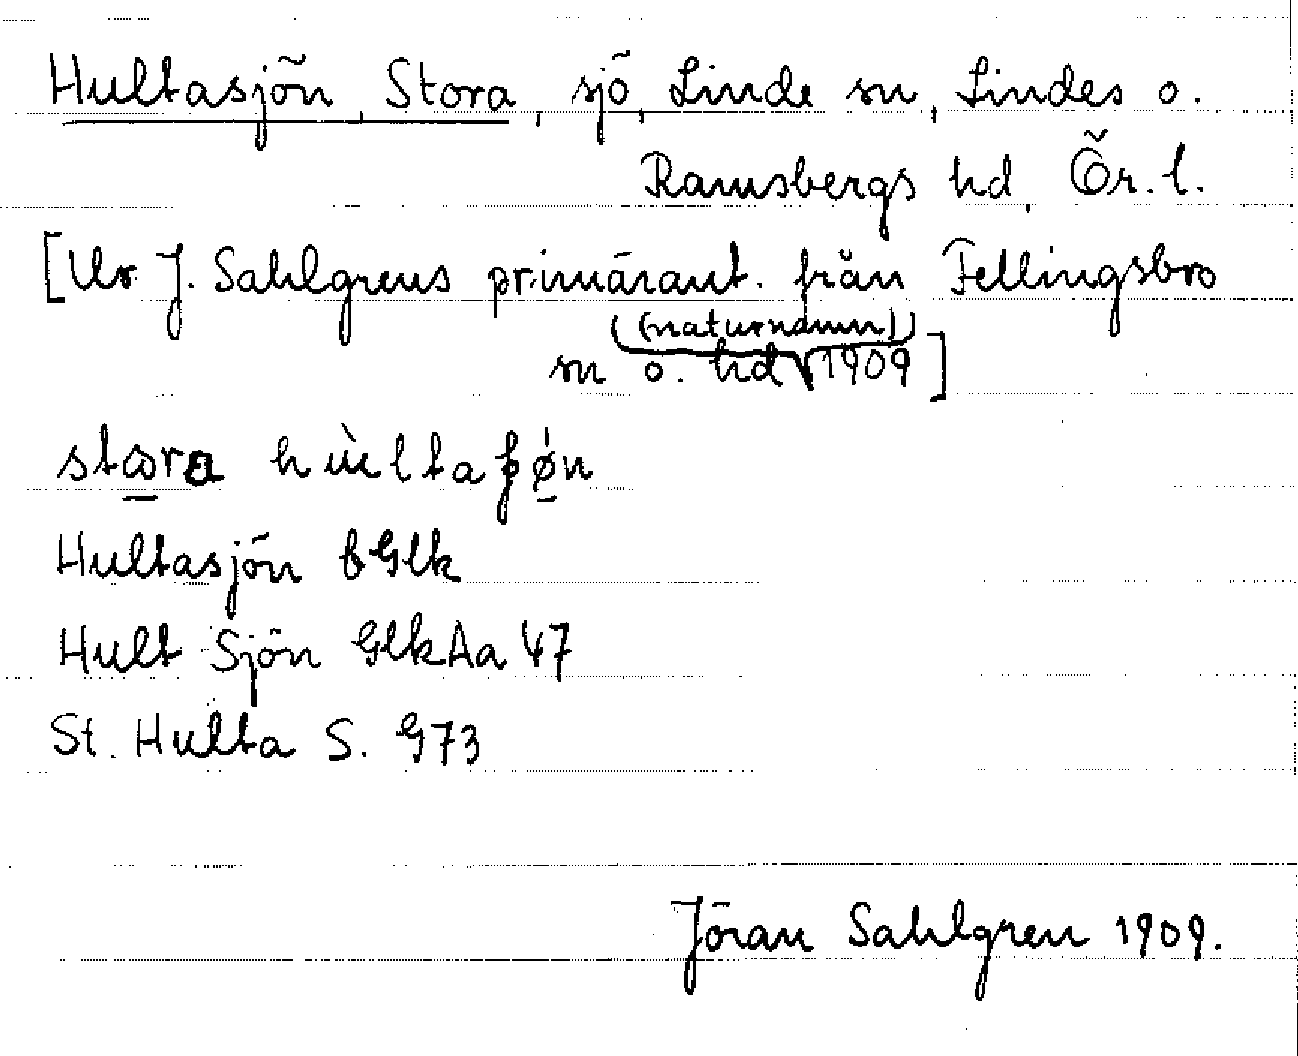 Hultasjön, Stora, sjö, Linde sn, Lindes o.
Ramsbergs hd, Ör. l.
[Ur J. Sahlgrens primärant. från Fellingsbro
sn o. hd (naturnamn) 1909]
Hultasjön bGlk
Hult Sjön GlkAa 47
St. Hulta S. G73
Jöran Sahlgren 1909.